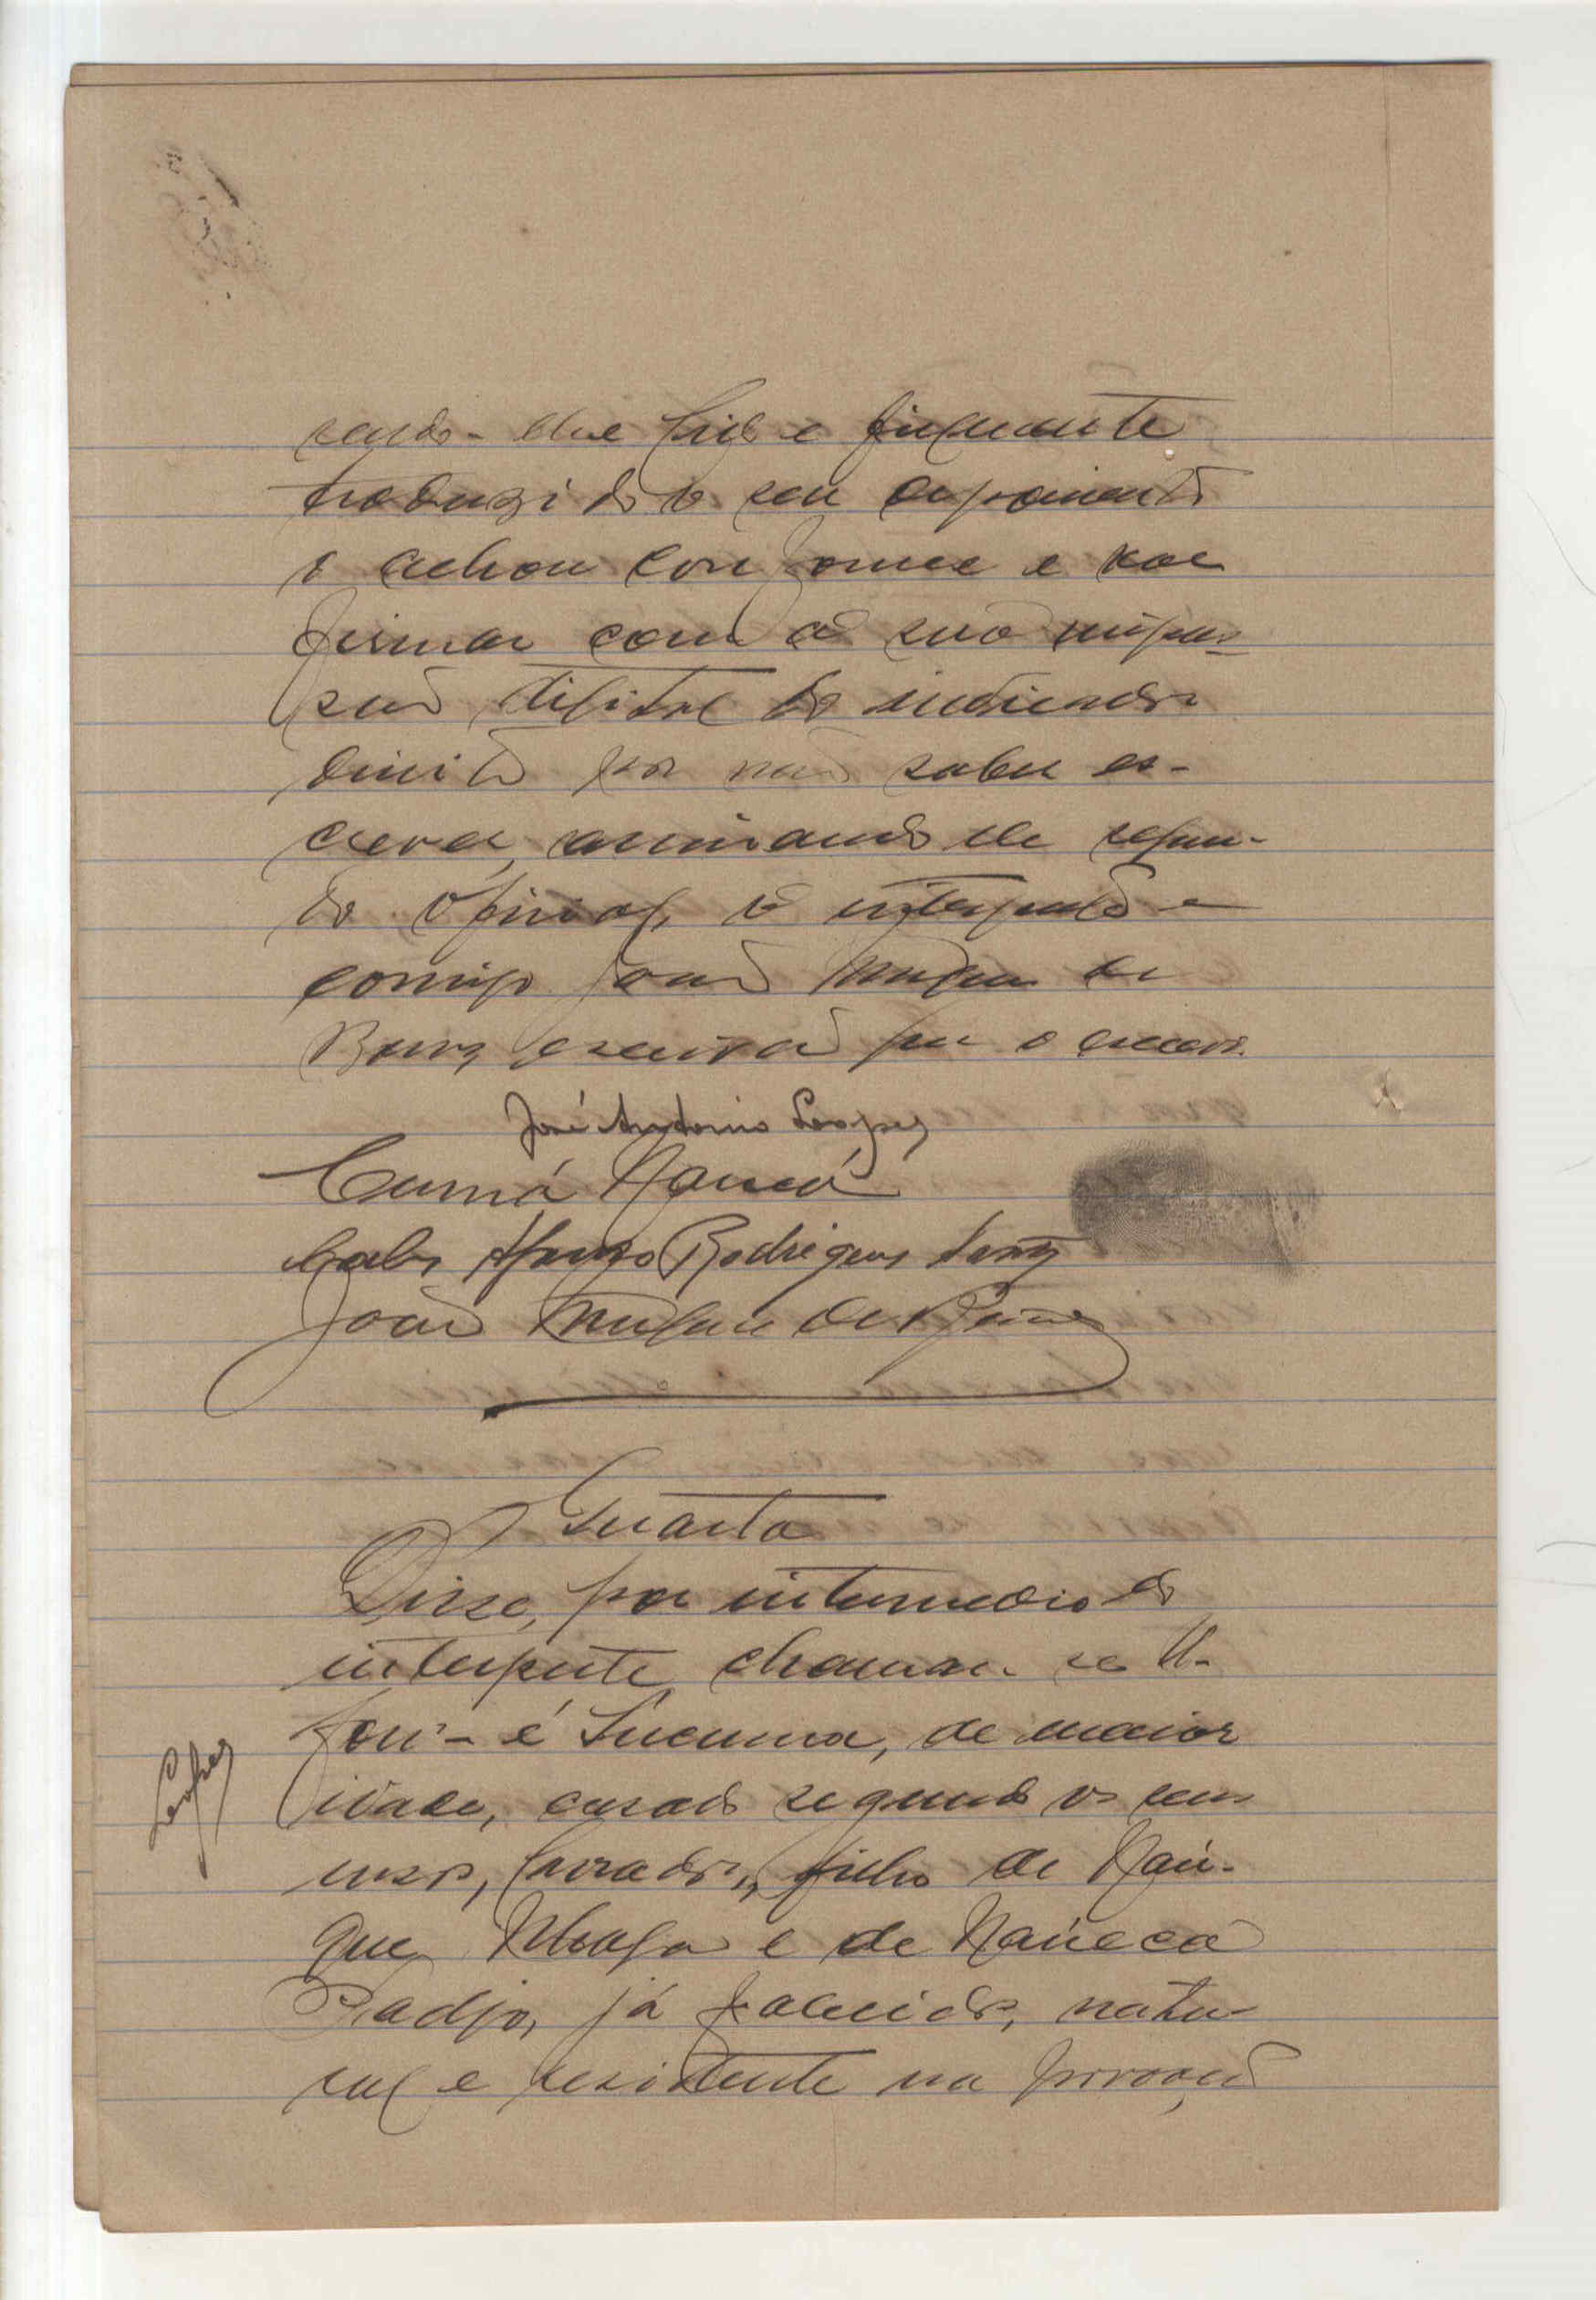 sendo-lhe lido e fielmente
traduzido o seu depoimento
o achou conforme e vae
firmar com a sua impres-
são digital do indicador
direito por não saber es-
crever, assinando ele segun-
do oficial, o interprete e
comigo João de
escrivão que o escrevi.
José Antonio Lopes
Cumá Nancó
Carlos Afonso Rodrigues Santos
João de
Quarta
Disse, por intermedio do
interprete chamar-se U-
fori-é Sucuma, de maior
idade, casado segundo os seus
usos, lavrador, filho de Naú-
que e de Naúeca
Padjo, já falecidos, natu-
ral e residente na povoação
Lopes